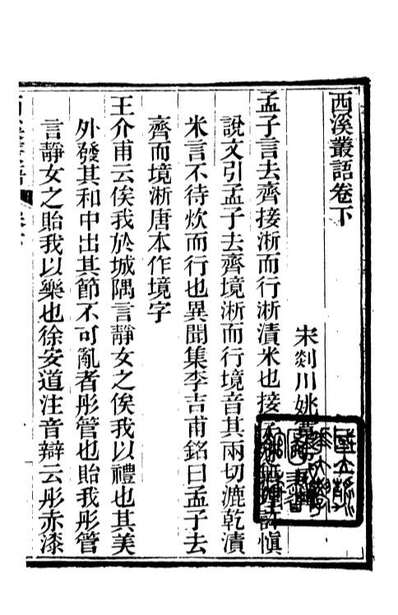 西溪叢語卷下
宋剡川姚
孟子言去齊接淅而行淅漬米也接
許愼
說文引孟子去齊境淅而行境音其兩切漉乾漬
米言不待炊而行也異聞集李吉甫銘曰孟子去
齊而境淅唐本作境字
王介甫云俟我於城隅言靜女之俟我以禮也其美
外發其和中出其節不可亂者彤管也貽我彤管
言靜女之貽我以樂也徐安道注音辯云彤赤漆